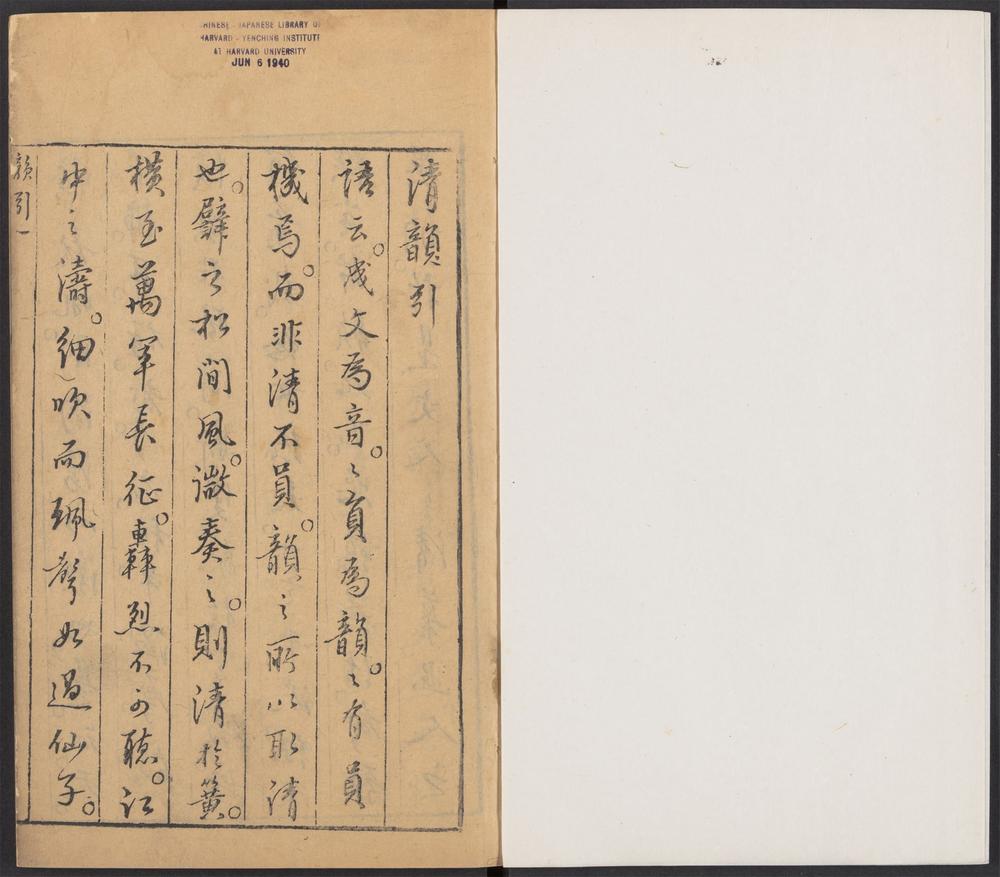 CHINESE - JAPANESE LIBRARY OF
HARVARD - YENCHING INSTITUTE
AT HARVARD UNIVERSITY
JUN 6 1940
清韻引
語云。成文為音。〻員為韻。〻有員
機焉。而非清不員。韻之所以取清
也。譬之松間風。微奏之。則清於簧。
橫至萬軍長征。轟烈不可聽。江
中之濤。細〻吹而珮聲如過仙子。
韻引 一